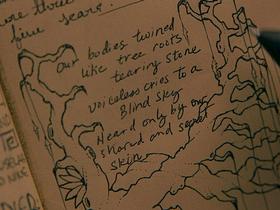 fine years.
Our bodies twined
like tree roots
tearing stone
voiceless cries to a
Blind sky
Heard only by our
shared and secret
skin